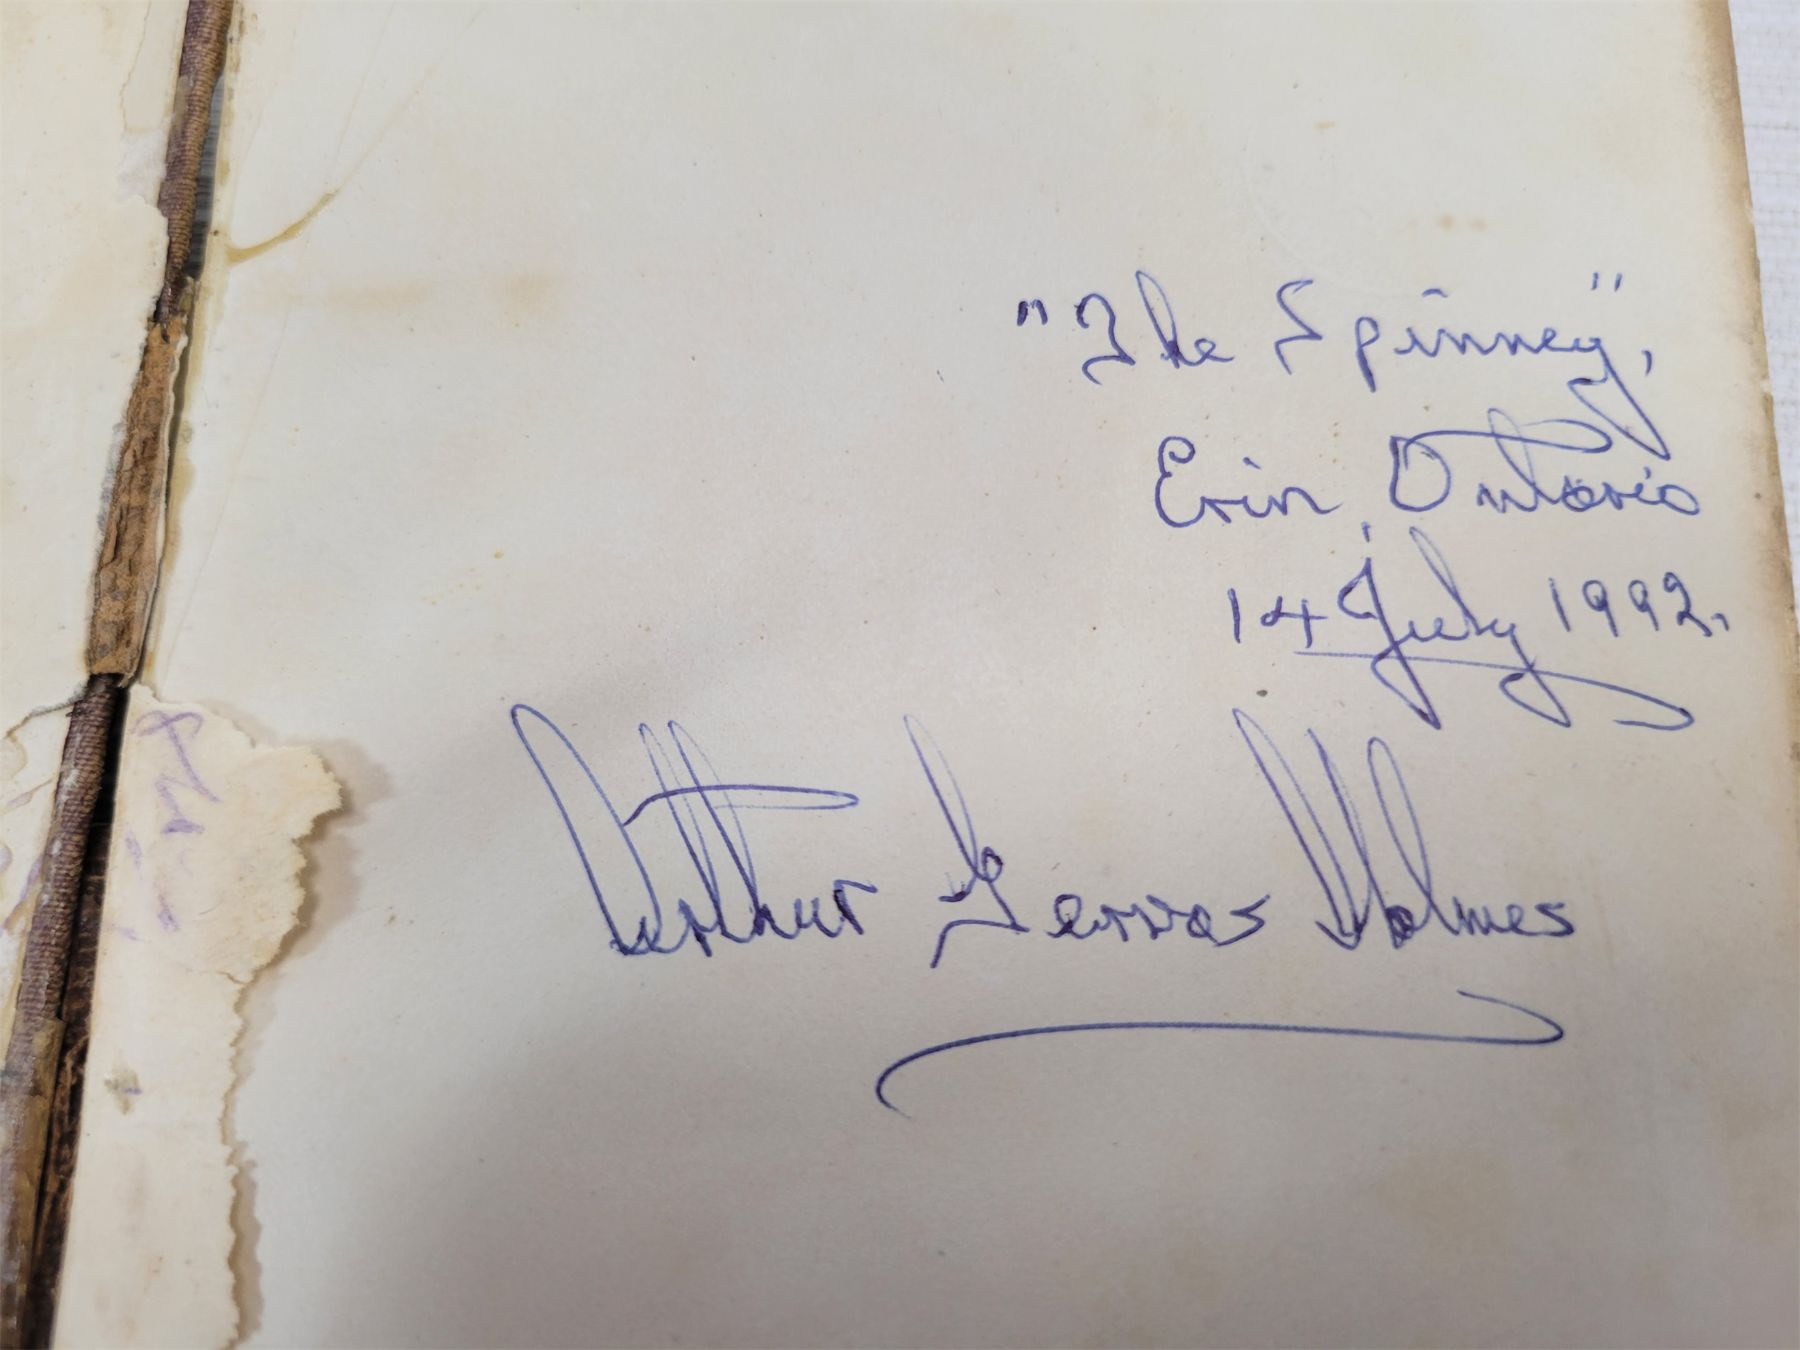 "The Spinney",
Erin, Ontario
14 July 1992.
Arthur Gervas Holmes